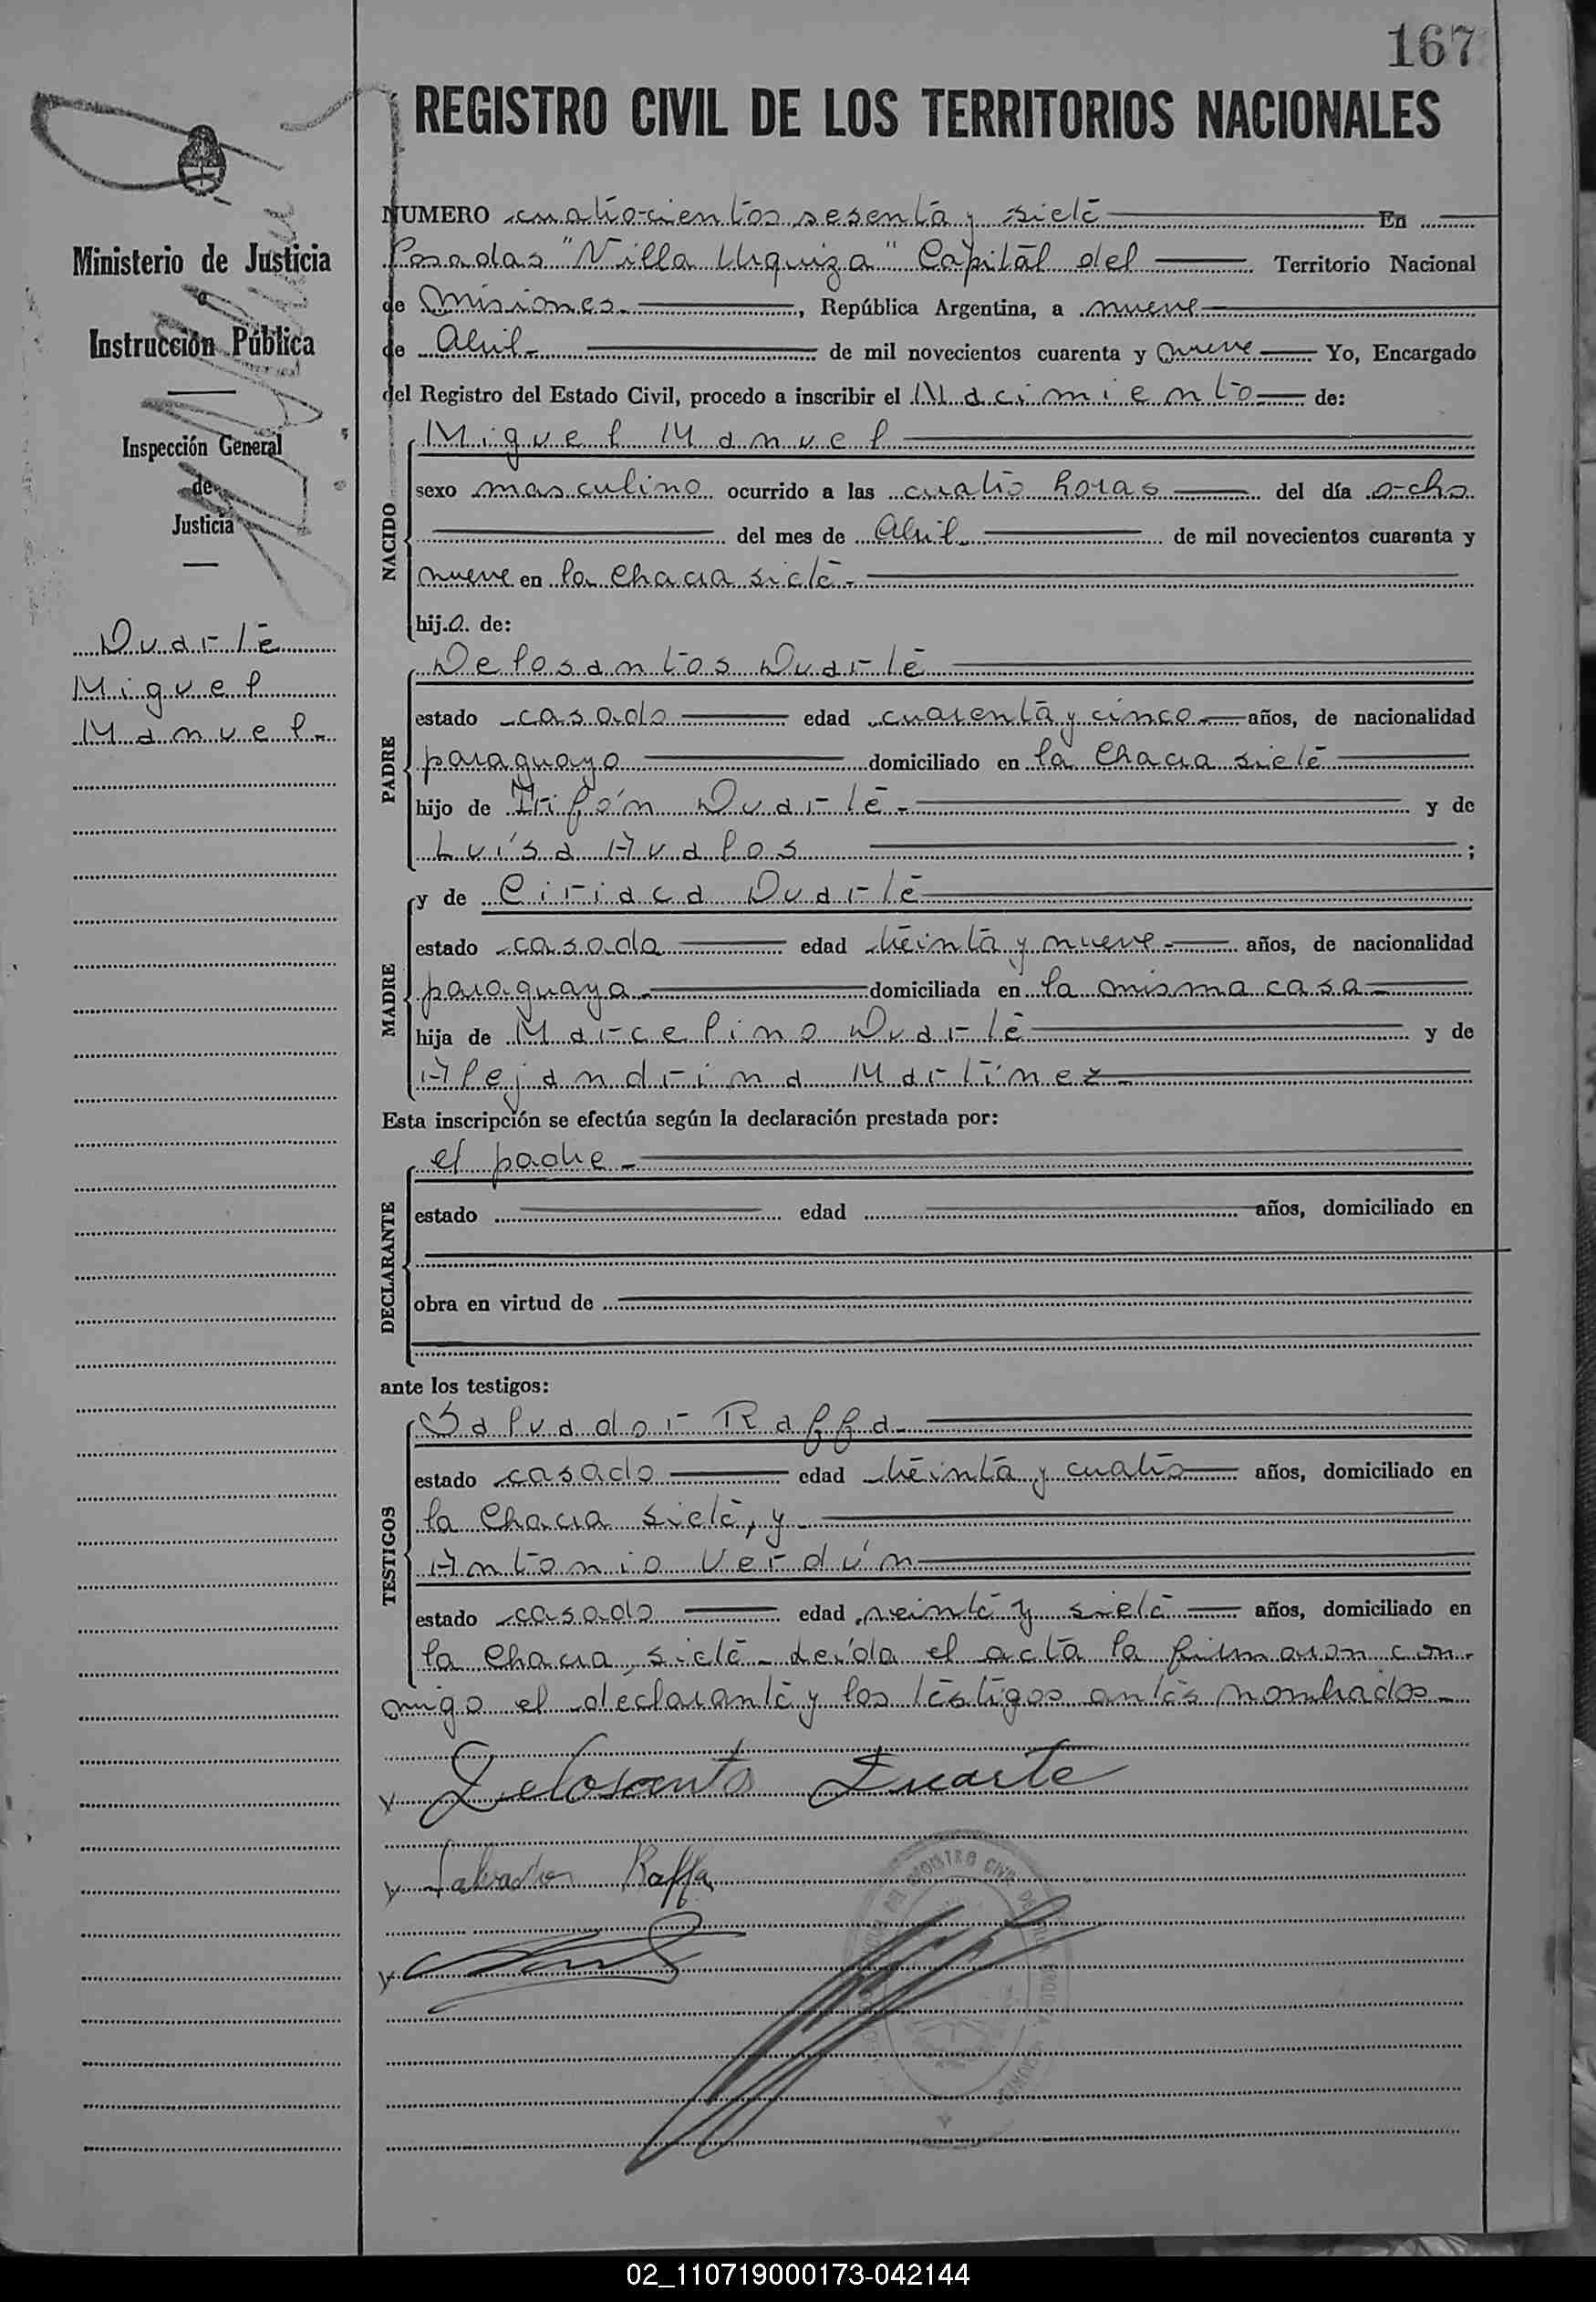 167
REGISTRO CIVIL DE LOS TERRITORIOS NACIONALES
Ministerio de Justicia
e
Instrucción Pública
Inspección General
de
Justicia
Duarte
Miguel
Manuel.-
NUMERO cuatrocientos sesenta y siete En
Posadas "Villa Urquiza" Capital del Territorio Nacional
de Misiones.- , República Argentina, a nueve
de Abril- de mil novecientos cuarenta y nueve Yo, Encargado
del Registro del Estado Civil, procedo a inscribir el Nacimiento de:
NACIDO
Miguel Manuel
sexo masculino ocurrido a las cuatro horas del día ocho
del mes de Abril- de mil novecientos cuarenta y
nueve en la Chacra siete-
hijo de:
PADRE
Delosantos Duarte
estado casado edad cuarenta y cinco- años, de nacionalidad
paraguayo domiciliado en la Chacra siete
hijo de Trifón Duarte.- y de
Luísa Avalos ;
MADRE
y de Ciriaca Duarte
estado casada edad treinta y nueve- años, de nacionalidad
paraguaya- domiciliada en la misma casa-
hija de Marcelino Duarte y de
Alejandrina Martínez-
Esta inscripción se efectúa según la declaración prestada por:
DECLARANTE
el padre-
estado edad años, domiciliado en
obra en virtud de
ante los testigos:
TESTIGOS
Salvador Raffa-
estado casado edad treinta y cuatro años, domiciliado en
la Chacra siete, y-
Antonio Verdún
estado casado edad veinte y siete años, domiciliado en
la Chacra, siete- Leída el acta la firmaron con-
migo el declarante y los testigos antes nombrados-
Delosantos Duarte
Salvador Raffa
02_110719000173-042144